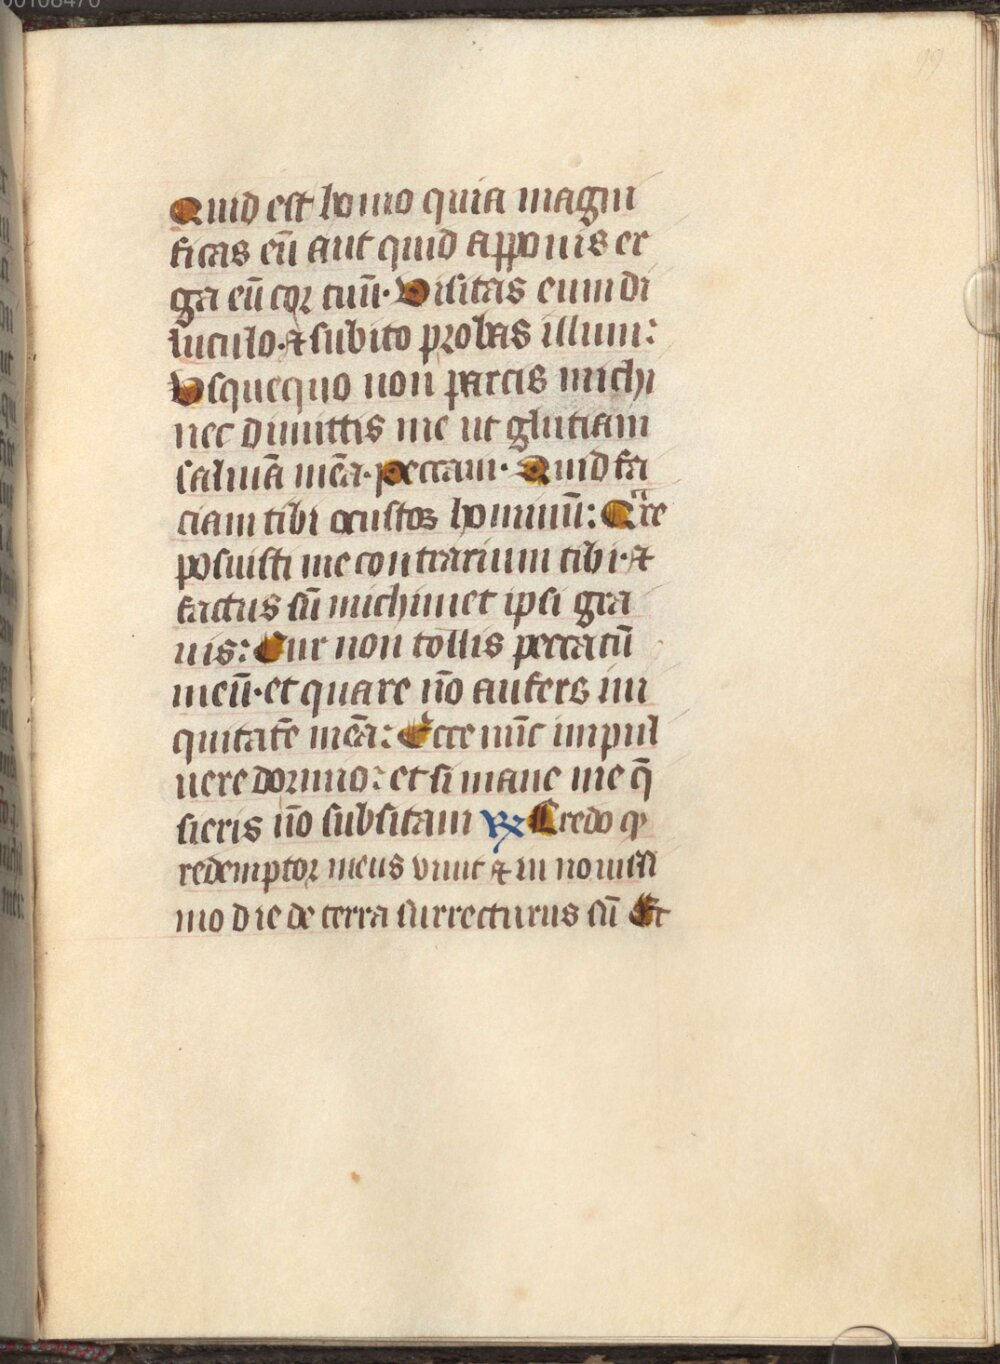 Quid est homo quia magni
ficas eū aut quid apponis er
ga eū cor tuū· Visitas eum di
luculo·⁊ subito probas illum:
Vsquequo non parcis michi
nec dimittis me ut glutiam
saliuā meā· peccaui· Quid fa
ciam tibi o custos hominū: Qᷓre
posuisti me contrarium tibi·⁊
factus sū michimet ipsi gra
uis: Cur non tollis peccatū
meū·et quare nō aufers ini
quitatē meā: Ecce nūc in pul
uere dormio: et si mane me q̄
sieris nō subsitam ℟ Credo ꝙ
redemptor meus viuit ⁊ in nouissi
mo die de terra surrecturus sū Et
99